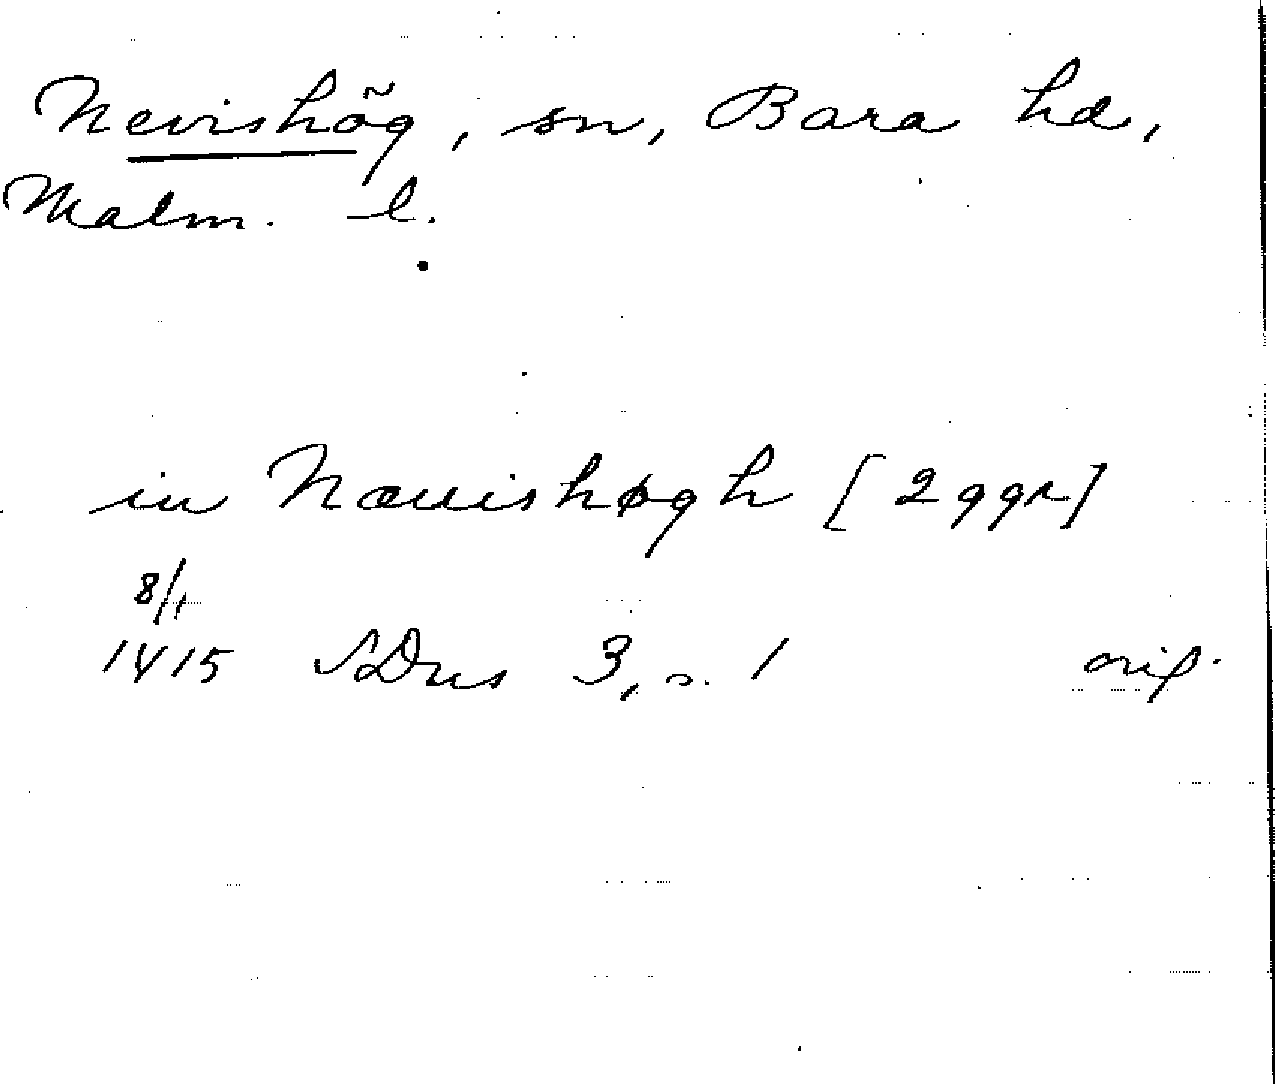 Nevishög, sn, Bara hd,
Malm. l.
in Næuishøgh [2 ggr]
8/1
1415 SDns 3, s. 1 orig.